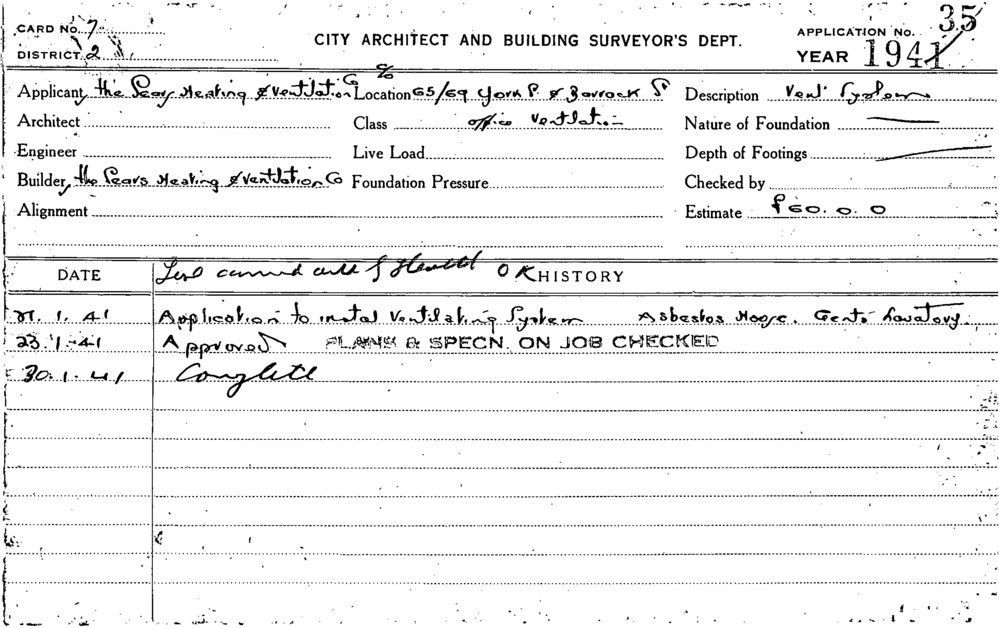 CARD NO. 7
DISTRICT 2
CITY ARCHITECT AND BUILDING SURVEYOR'S DEPT.
APPLICATION NO. 35
YEAR 1941
Applicant, the Pears Heating & Ventilation Co Location 65/69 York St & Barrack St Description Vent System
Architect Class office Ventilation Nature of Foundation
Engineer Live Load Depth of Footings
Builder, the Pears Heating & Ventilation Co Foundation Pressure Checked by
Alignment Estimate £60. 0. 0
DATE OK HISTORY
21. 1. 41 Application to instal Ventilating System Asbestos House. Gents Lavatory.
23. 1. 41 Approved PLANS & SPECN. ON JOB CHECKED
30. 1. 41 Complete